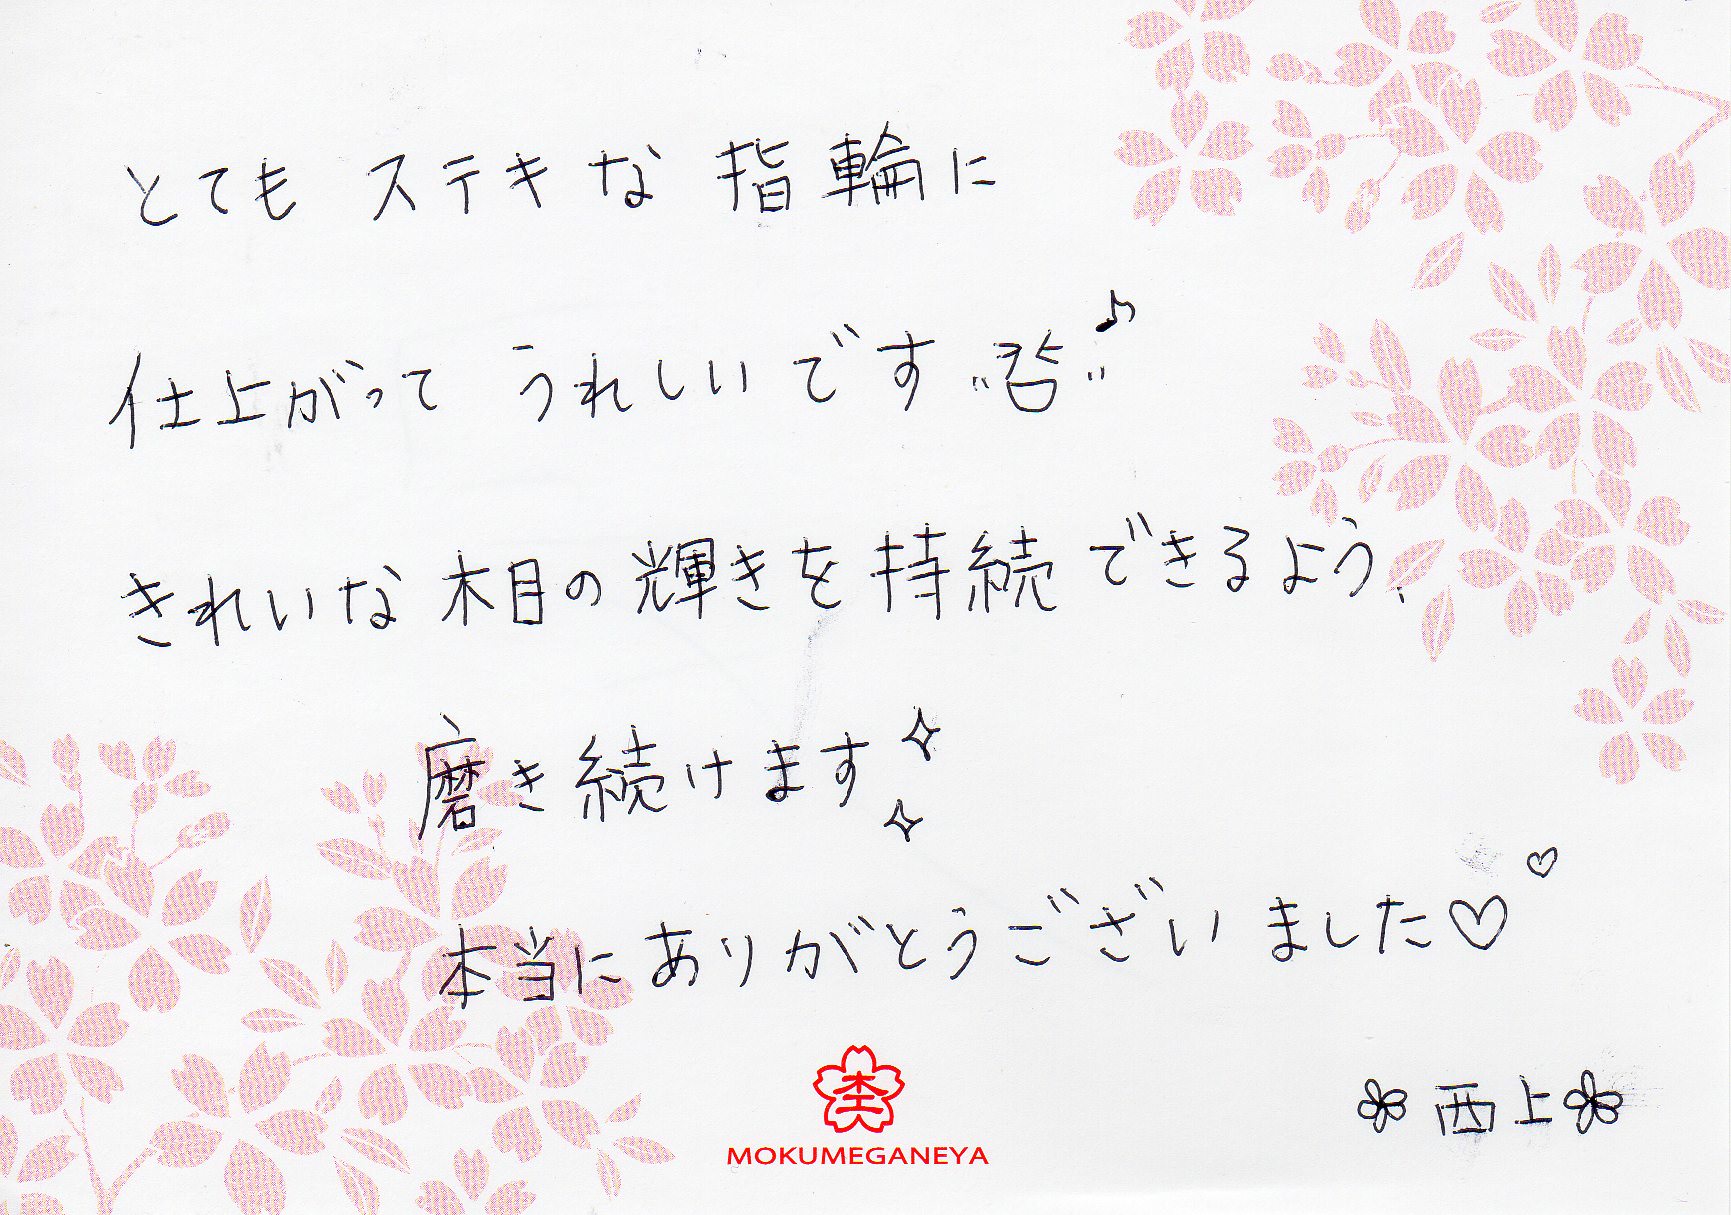 とても ステキな 指輪に
仕上がって うれしいです♪
きれいな木目の輝きを持続できるよう、
磨き続けます✧✧
本当にありがとうございました♡♡
西上
杢
MOKUMEGANEYA